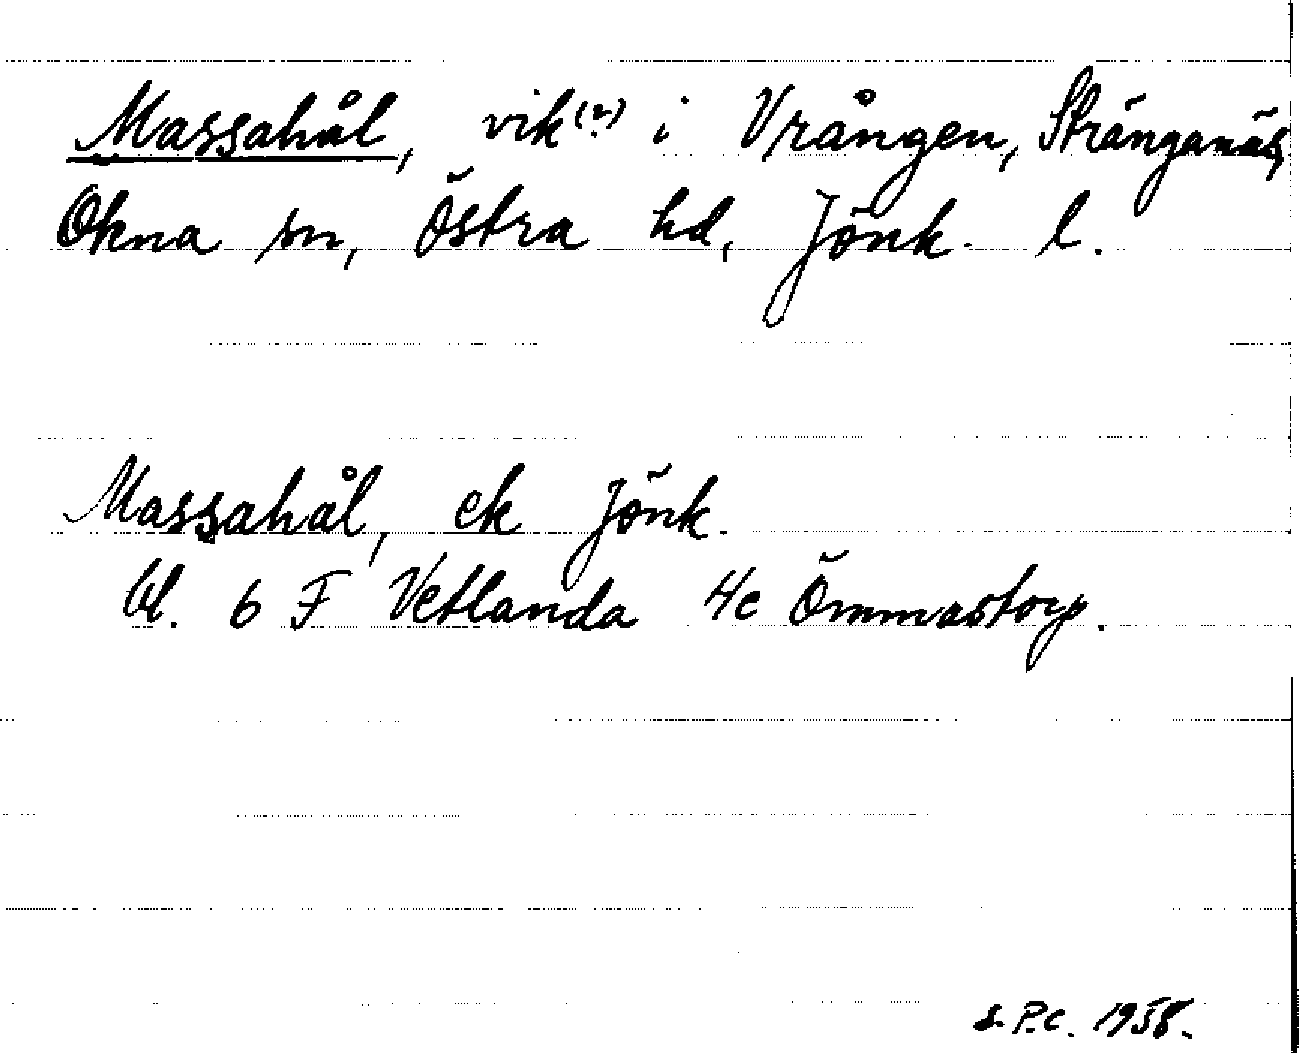 Massahål, vik(?) i Vrången, Stränganäs,
Ökna sn, Östra hd, Jönk. l.
Massahål, ek Jönk.
bl. 6 F Vetlanda 4c Ömmastorp.
S. P.C. 1958.